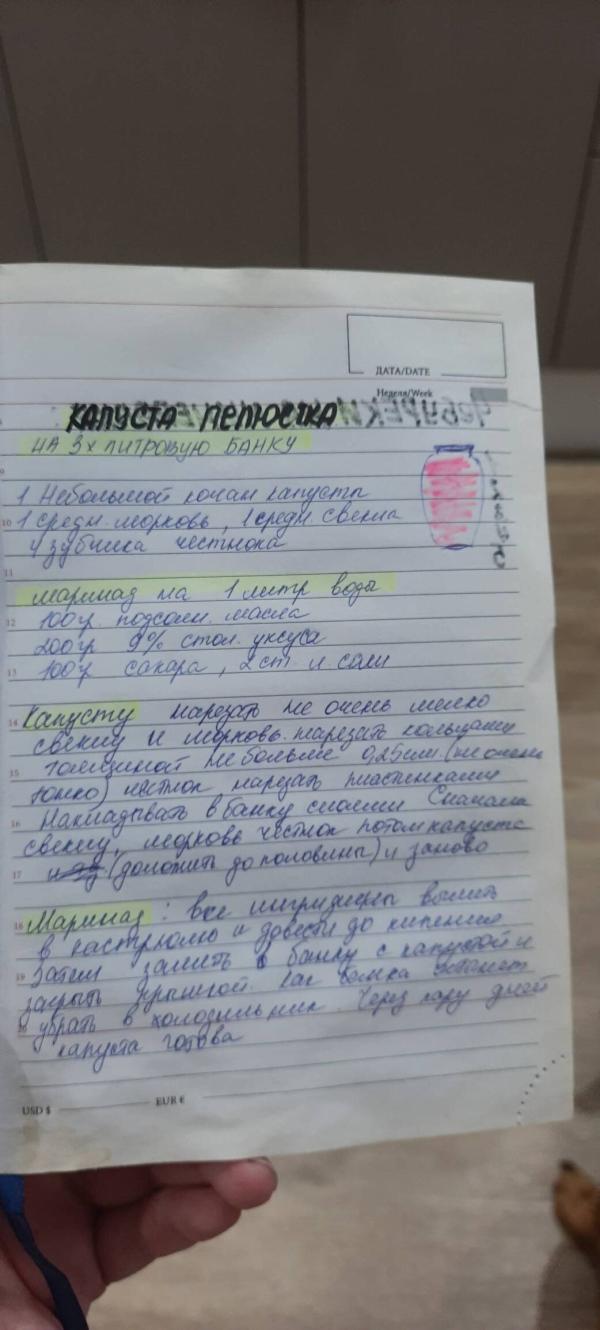 ДАТА/DATE
Неделя/Week
КАПУСТА ПЕЛЮСТКА
НА 3х ЛИТРОВУЮ БАНКУ
1 Небольшой кочан капусты
1 средн. морковь, 1 средн. свекла
4 зубчика честнока
маринад на 1 литр воды
100гр. подсолн. масла
200гр 9% стол. уксуса
100гр сахара, 2 ст. л. соли
Капусту нарезать не очень мелко
свеклу и морковь нарезать кольцами
толщиной не больше 0,25см. (не очень
тонко) честнок нарезать пластинками
Накладывать в банку слоями Сначала
свеклу, морковь честнок потом капуста
(доложить до половины) и заново
Маринад: все ингридиены вылить
в кастрюлю и довести до кипения
Затем залить в банку с капустой и
закрыть крышкой. Как банка остынет
убрать в холодильник. Через пару дней
капуста готова
USD $
EUR €